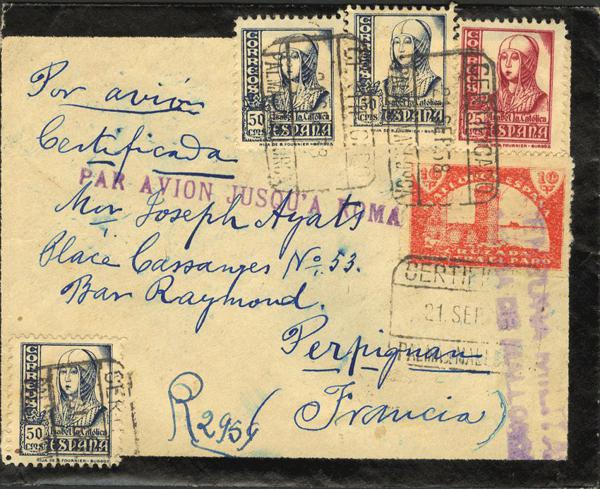 CORREOS
50 CTS
Isabel la Católica
ESPAÑA
HIJA DE B. FOURNIER - BURGOS
CORREOS
50 CTS
Isabel la Católica
ESPAÑA
HIJA DE B. FOURNIER - BURGOS
CORREOS
25
Isabel la Católica
ESPAÑA
HIJA DE B. FOURNIER - BURGOS
CERTIFICADO
Por avión
Certificada
PAR AVION JUSQU'A ROMA
10 10
CRUZADA
CONTRA EL PARO
Mor Joseph Ayats
Place Cassanyes No. 53.
Bar Raymond.
CERTIFI
21. SEP.
Perpignan
(Francia)
R2959
CORREOS
50 CTS
Isabel la Católica
ESPAÑA
HIJA DE B. FOURNIER - BURGOS